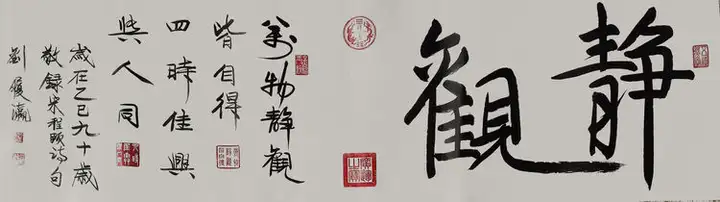 靜觀
萬物靜觀
皆自得
四時佳興
與人同
歲在乙巳九十歲
敬録宋程顥詩句
劉俊瀛